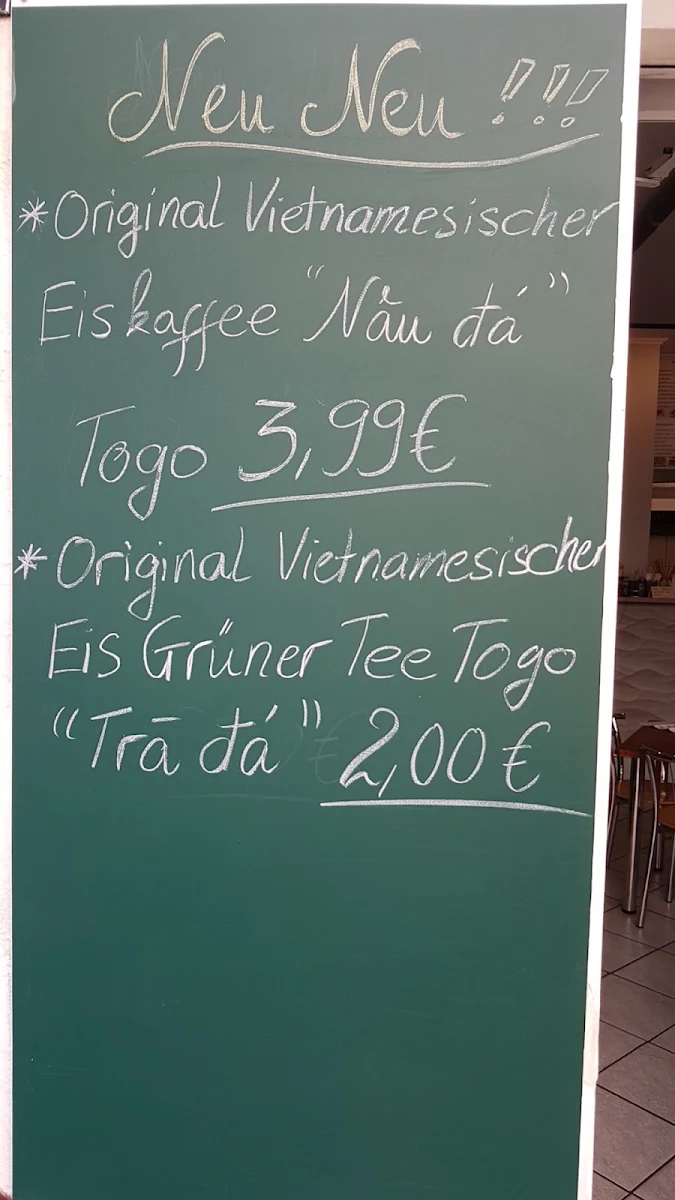 Neu Neu !!!
*Original Vietnamesischer
Eiskaffee "Nâu đá"
Togo 3,99€
*Original Vietnamesischer
Eis Grüner Tee Togo
"Trā đá" 2,00€